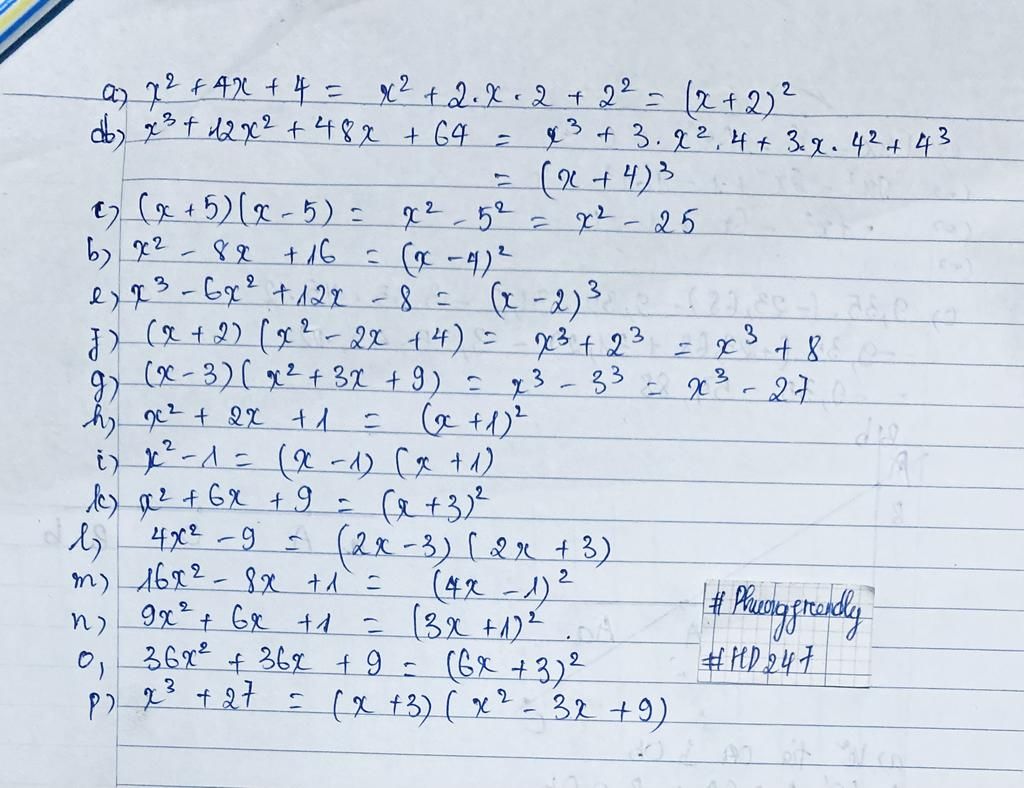 a) x² + 4x + 4 = x² + 2.x.2 + 2² = (x+2)²
db) x³ + 12x² + 48x + 64 = x³ + 3.x².4 + 3.x.4² + 4³
= (x + 4)³
c) (x+5)(x-5) = x² - 5² = x² - 25
b) x² - 8x + 16 = (x - 4)²
e) x³ - 6x² + 12x - 8 = (x - 2)³
f) (x+2)(x² - 2x + 4) = x³ + 2³ = x³ + 8
g) (x-3)(x² + 3x + 9) = x³ - 3³ = x³ - 27
h) x² + 2x + 1 = (x+1)²
i) x² - 1 = (x - 1)(x + 1)
k) x² + 6x + 9 = (x+3)²
l) 4x² - 9 = (2x - 3)(2x + 3)
m) 16x² - 8x + 1 = (4x - 1)²
n) 9x² + 6x + 1 = (3x + 1)².
o, 36x² + 36x + 9 = (6x + 3)²
p) x³ + 27 = (x+3)(x² - 3x + 9)
# Phuonggreendly
#HD247